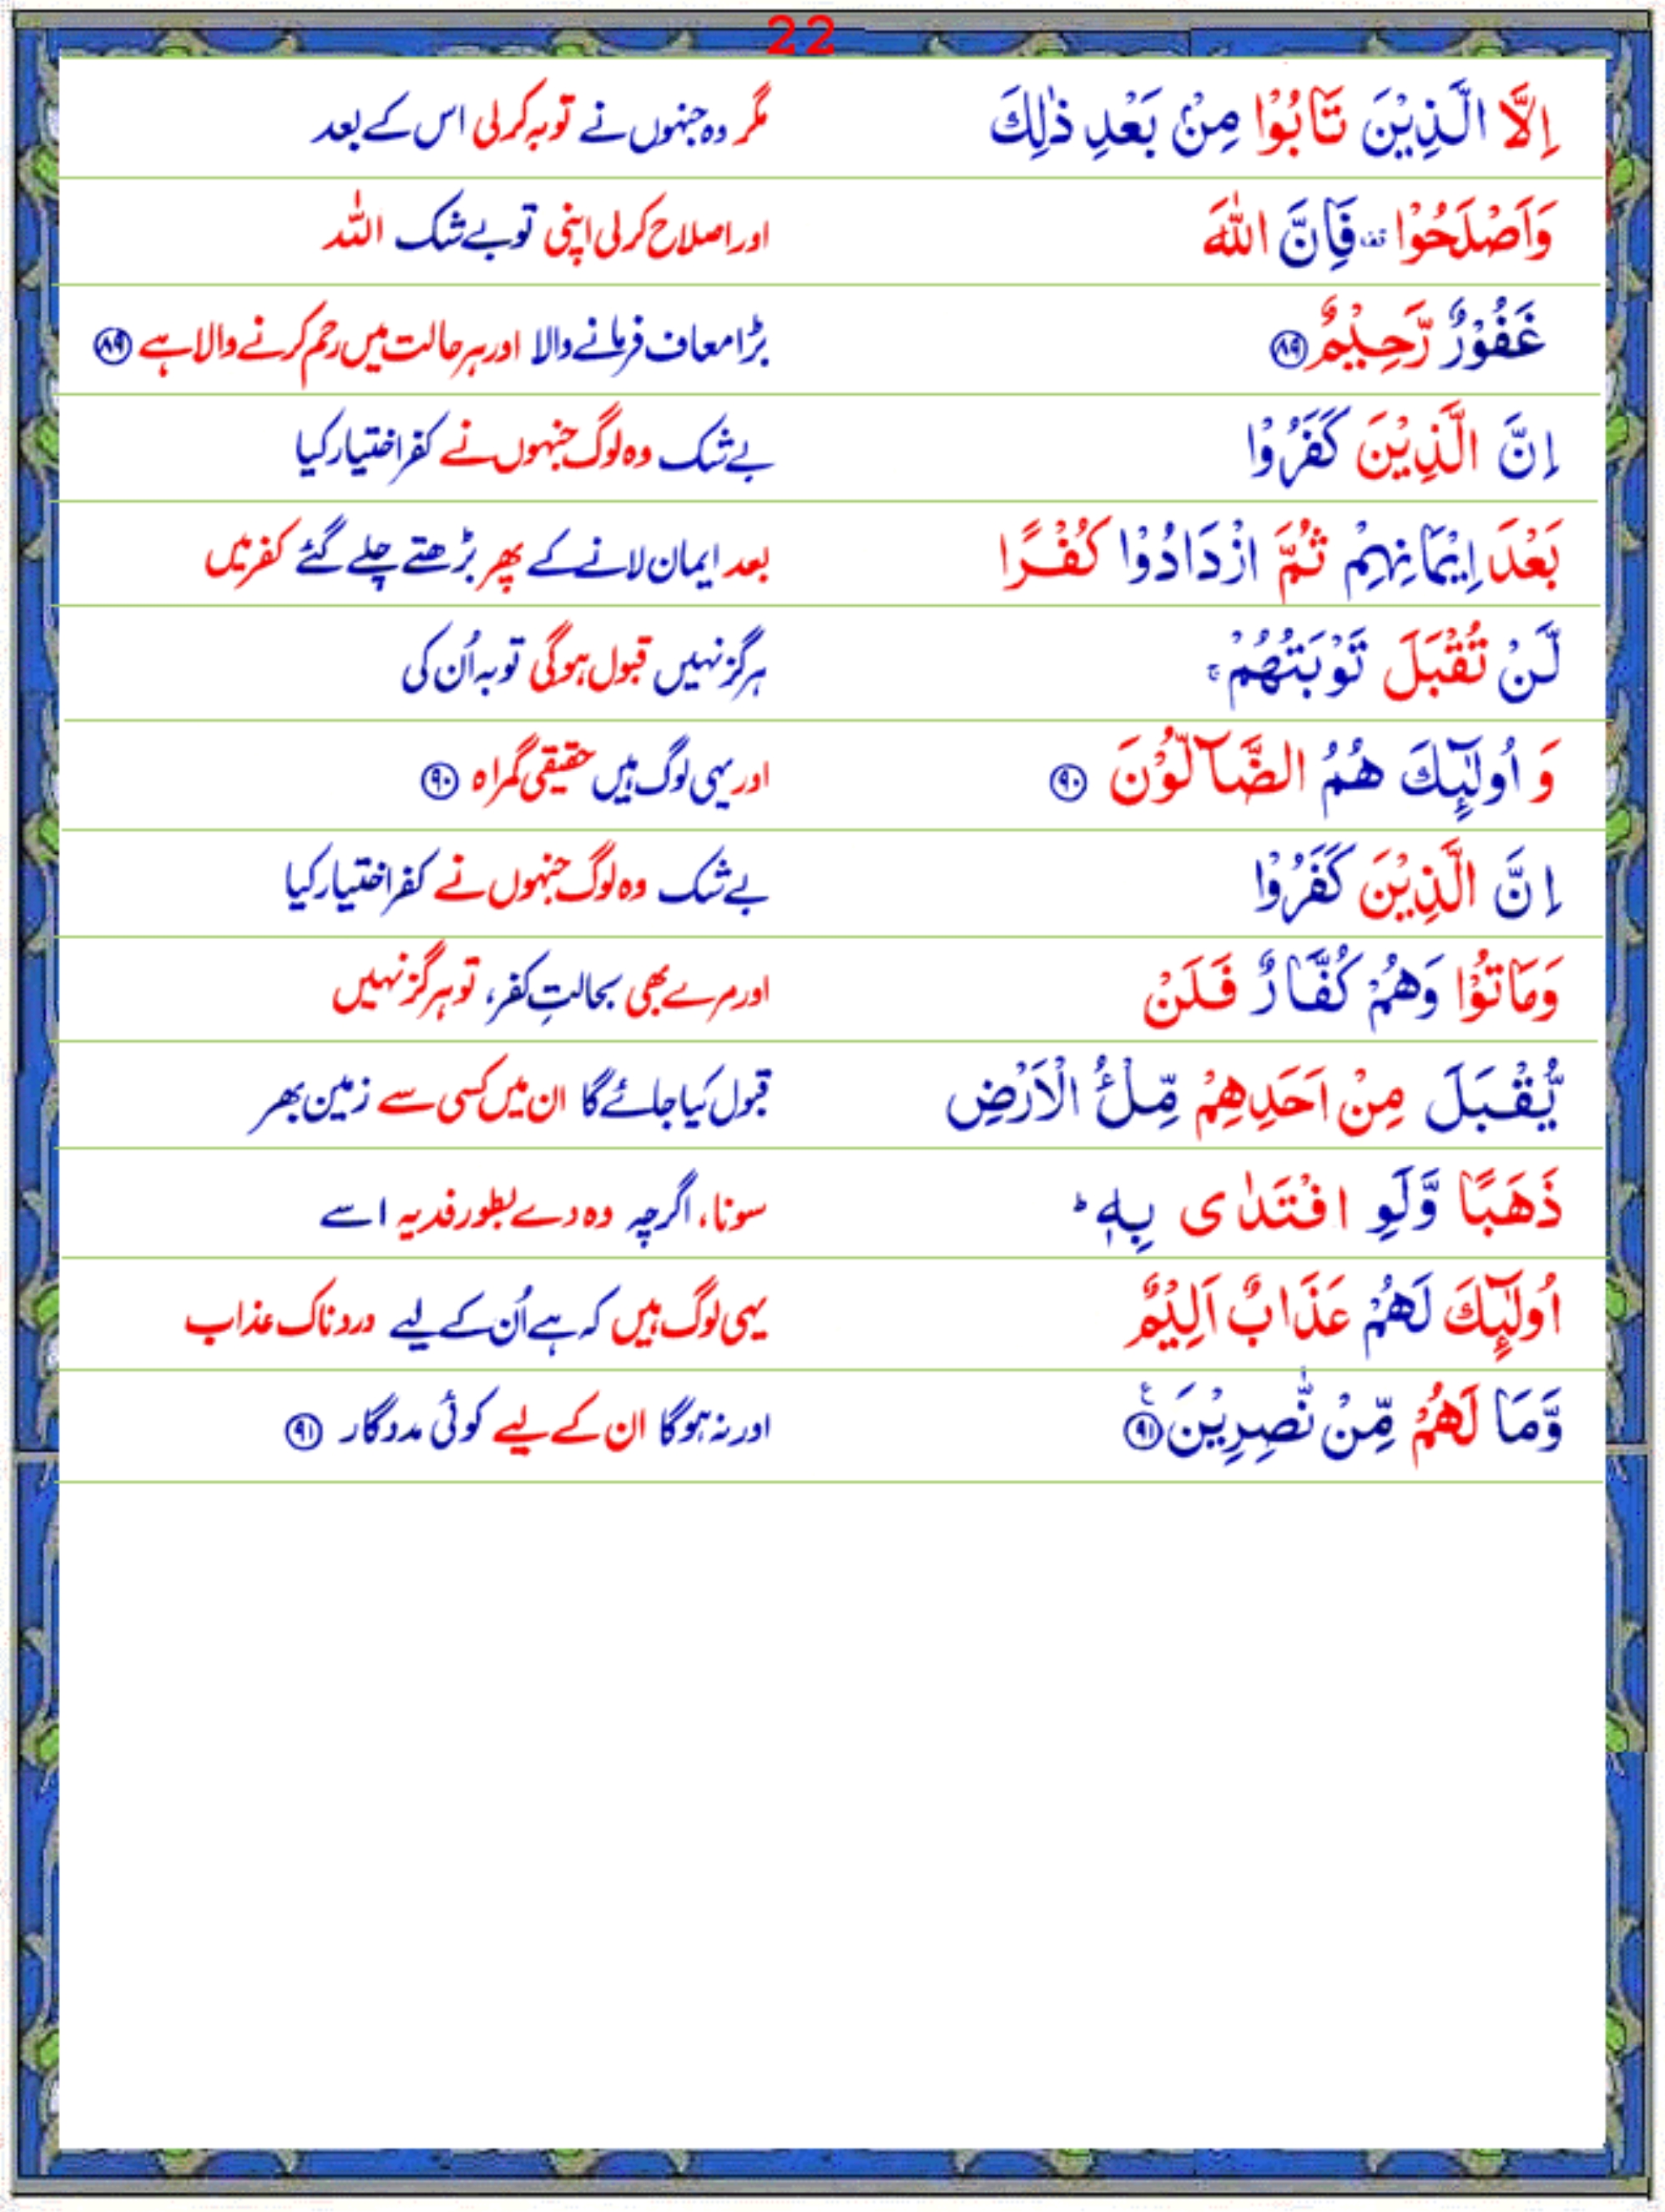 22
اِلَّا الَّذِيْنَ تَابُوْا مِنْۢ بَعْدِ ذٰلِكَ مگر وہ جنہوں نے توبہ کرلی اس کے بعد
وَاَصْلَحُوْا ۫ قف فَاِنَّ اللّٰهَ اور اصلاح کرلی اپنی تو بے شک اللہ
غَفُوْرٌ رَّحِيْمٌ ﴿۸۹﴾ بڑا معاف فرمانے والا اور ہر حالت میں رحم کرنے والا ہے ﴿۸۹﴾
اِنَّ الَّذِيْنَ كَفَرُوْا بے شک وہ لوگ جنہوں نے کفر اختیار کیا
بَعْدَ اِيْمَانِهِمْ ثُمَّ ازْدَادُوْا كُفْرًا بعد ایمان لانے کے پھر بڑھتے چلے گئے کفر میں
لَّنْ تُقْبَلَ تَوْبَتُهُمْ ۚ ہرگز نہیں قبول ہوگی توبہ اُن کی
وَ اُولٰٓئِكَ هُمُ الضَّآلُّوْنَ ﴿۹۰﴾ اور یہی لوگ ہیں حقیقی گمراہ ﴿۹۰﴾
اِنَّ الَّذِيْنَ كَفَرُوْا بے شک وہ لوگ جنہوں نے کفر اختیار کیا
وَمَاتُوْا وَهُمْ كُفَّارٌ فَلَنْ اور مرے بھی بحالتِ کفر، تو ہرگز نہیں
يُّقْبَلَ مِنْ اَحَدِهِمْ مِّلْءُ الْاَرْضِ قبول کیا جائے گا ان میں کسی سے زمین بھر
ذَهَبًا وَّلَوِ افْتَدٰى بِهٖ ؕ سونا، اگرچہ وہ دے بطور فدیہ اسے
اُولٰٓئِكَ لَهُمْ عَذَابٌ اَلِيْمٌ یہی لوگ ہیں کہ ہے اُن کے لیے دردناک عذاب
وَّمَا لَهُمْ مِّنْ نّٰصِرِيْنَ ﴿۹۱﴾ ۧ اور نہ ہوگا ان کے لیے کوئی مددگار ﴿۹۱﴾